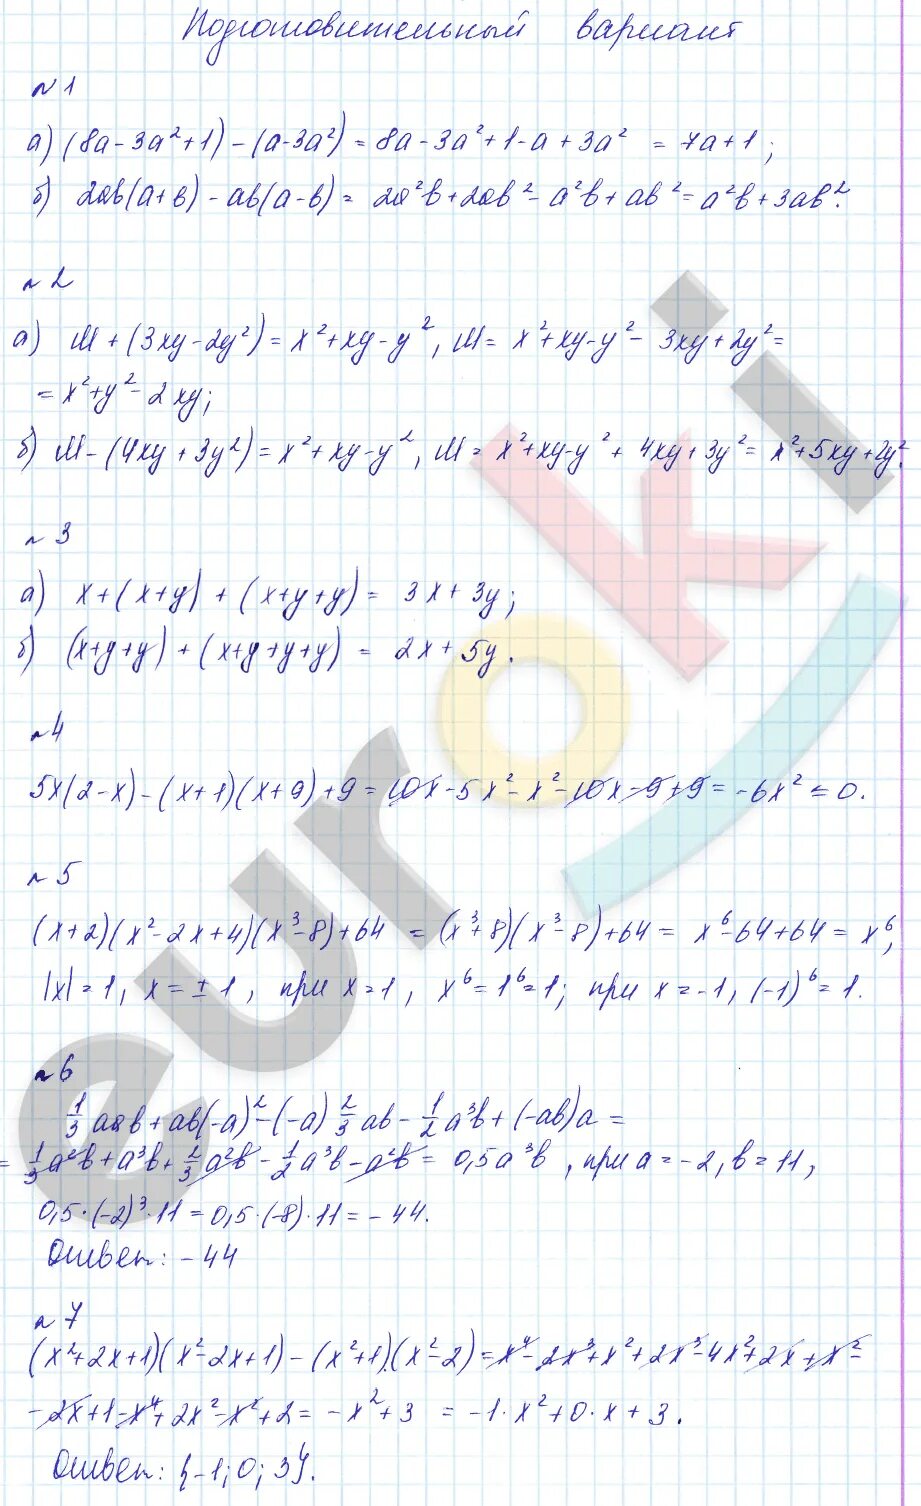 Подготовительный вариант
№1
а) (8a - 3a² + 1) - (a - 3a²) = 8a - 3a² + 1 - a + 3a² = 7a + 1;
б) 2ab(a + b) - ab(a - b) = 2a²b + 2ab² - a²b + ab² = a²b + 3ab².
№2
а) M + (3xy - 2y²) = x² + xy - y², M = x² + xy - y² - 3xy + 2y² =
= x² + y² - 2xy;
б) M - (4xy + 3y²) = x² + xy - y², M = x² + xy - y² + 4xy + 3y² = x² + 5xy + 2y².
№3
а) x + (x + y) + (x + y + y) = 3x + 3y;
б) (x + y + y) + (x + y + y + y) = 2x + 5y.
№4
5x(2 - x) - (x + 1)(x + 9) + 9 = 10x - 5x² - x² - 10x - 9 + 9 = -6x² ≤ 0.
№5
(x + 2)(x² - 2x + 4)(x³ - 8) + 64 = (x³ + 8)(x³ - 8) + 64 = x⁶ - 64 + 64 = x⁶,
|x| = 1, x = ± 1, при x = 1, x⁶ = 1⁶ = 1; при x = -1, (-1)⁶ = 1.
№6
1/3 aab + ab(-a)² - (-a) 2/3 ab - 1/2 a³b + (-ab)a =
= 1/3 a²b + a³b + 2/3 a²b - 1/2 a³b - a²b = 0,5a³b, при a = -2, b = 11,
0,5 · (-2)³ · 11 = 0,5 · (-8) · 11 = -44.
Ответ: -44
№7
(x² + 2x + 1)(x² - 2x + 1) - (x² + 1)(x² - 2) = x⁴ - 2x³ + x² + 2x³ - 4x² + 2x + x² -
- 2x + 1 - x⁴ + 2x² - x² + 2 = -x² + 3 = -1 · x² + 0 · x + 3.
Ответ: {-1; 0; 3}.
euroki